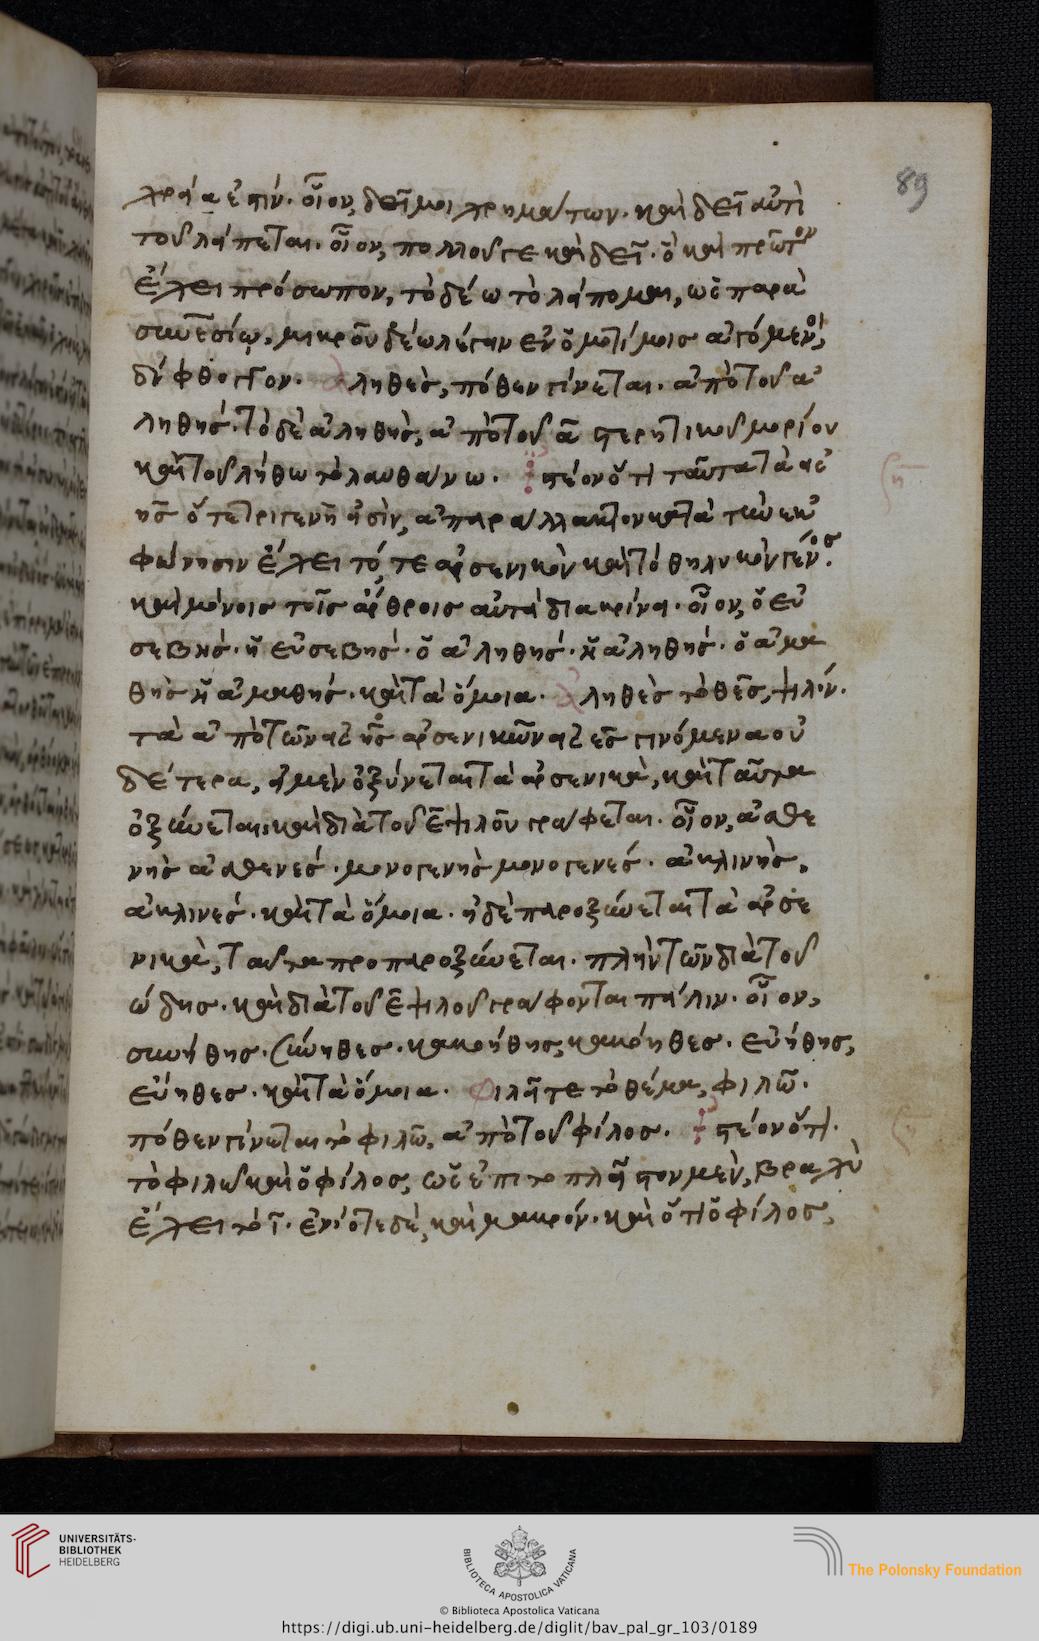 89
χρεία ἐστίν· οἷον, δεῖ μοι χρημάτων· καὶ δεῖ ἀντὶ
τοῦ λείπεται· οἷον, πολλοῦ γε καὶ δεῖ· ὃ καὶ πρῶτον
ἔχει πρόσωπον, τὸ δέω τὸ λείπομαι, ὡς παρὰ
συνεσίῳ, μικροῦ δέω λέγειν ἐν ὁμοτίμοις
φθόγγον. ἀληθὲς, πόθεν γίνεται· ἀπὸ τοῦ ἀ
ληθής· τὸ δὲ ἀληθὴς, ἀπὸ τοῦ α στερητικοῦ μορίου
καὶ τοῦ λήθω τὸ λανθάνω. ἰστέον ὅτι ταῦτα τὰ εἰ
ης ὅτε τριγενῆ εἰσὶν, ἀπαράλλακτον κατὰ τὴν ἐκ
φώνησιν ἔχει τό, τε ἀρσενικὸν καὶ τὸ θηλυκὸν γένος.
καὶ μόνοις τοῖς ἄρθροις αὐτὰ διακρίνει· οἷον, ὁ εὐ
σεβής· ἡ εὐσεβής· ὁ ἀληθής· ἡ ἀληθής· ὁ ἀμα
θὴς ἡ ἀμαθής· καὶ τὰ ὅμοια. ἀληθὲς τὸ θες, ψιλόν.
τὰ ἀπὸ τῶν εἰς ης ἀρσενικῶν εἰς ες γινόμενα οὐ
δέτερα, εἰ μὲν ὀξύνεται τὰ ἀρσενικὰ, καὶ ταῦτα
ὀξύνεται· καὶ διὰ τοῦ ε ψιλοῦ γράφεται· οἷον, ἀσθε
νὴς ἀσθενές· μονογενὴς μονογενές· ἀκλινὴς,
ἀκλινές· καὶ τὰ ὅμοια· εἰ δὲ παροξύνεται τὰ ἀρσε
νικὰ, ταῦτα προπαροξύνεται· πλὴν τῶν διὰ τοῦ
ώδης· καὶ διὰ τοῦ ε ψιλοῦ γράφονται πάλιν· οἷον,
συνήθης· σύνηθες· κακοήθης, κακόηθες· εὐήθης,
εὔηθες· καὶ τὰ ὅμοια. φιλεῖτε τὸ θέμα, φιλῶ.
πόθεν γίνεται τὸ φιλῶ, ἀπὸ τοῦ φίλος. ἰστέον ὅτι
τὸ φιλῶ καὶ ὁ φίλος, ὡς ἐπὶ τὸ πλεῖστον μὲν, βραχὺ
ἔχει τὸ ι· ἐνίοτε δὲ, καὶ μακρόν· καὶ ὅτι ὁ φίλος,
UNIVERSITÄTS-
BIBLIOTHEK
HEIDELBERG
BIBLIOTECA APOSTOLICA VATICANA
The Polonsky Foundation
© Biblioteca Apostolica Vaticana
https://digi.ub.uni-heidelberg.de/diglit/bav_pal_gr_103/0189